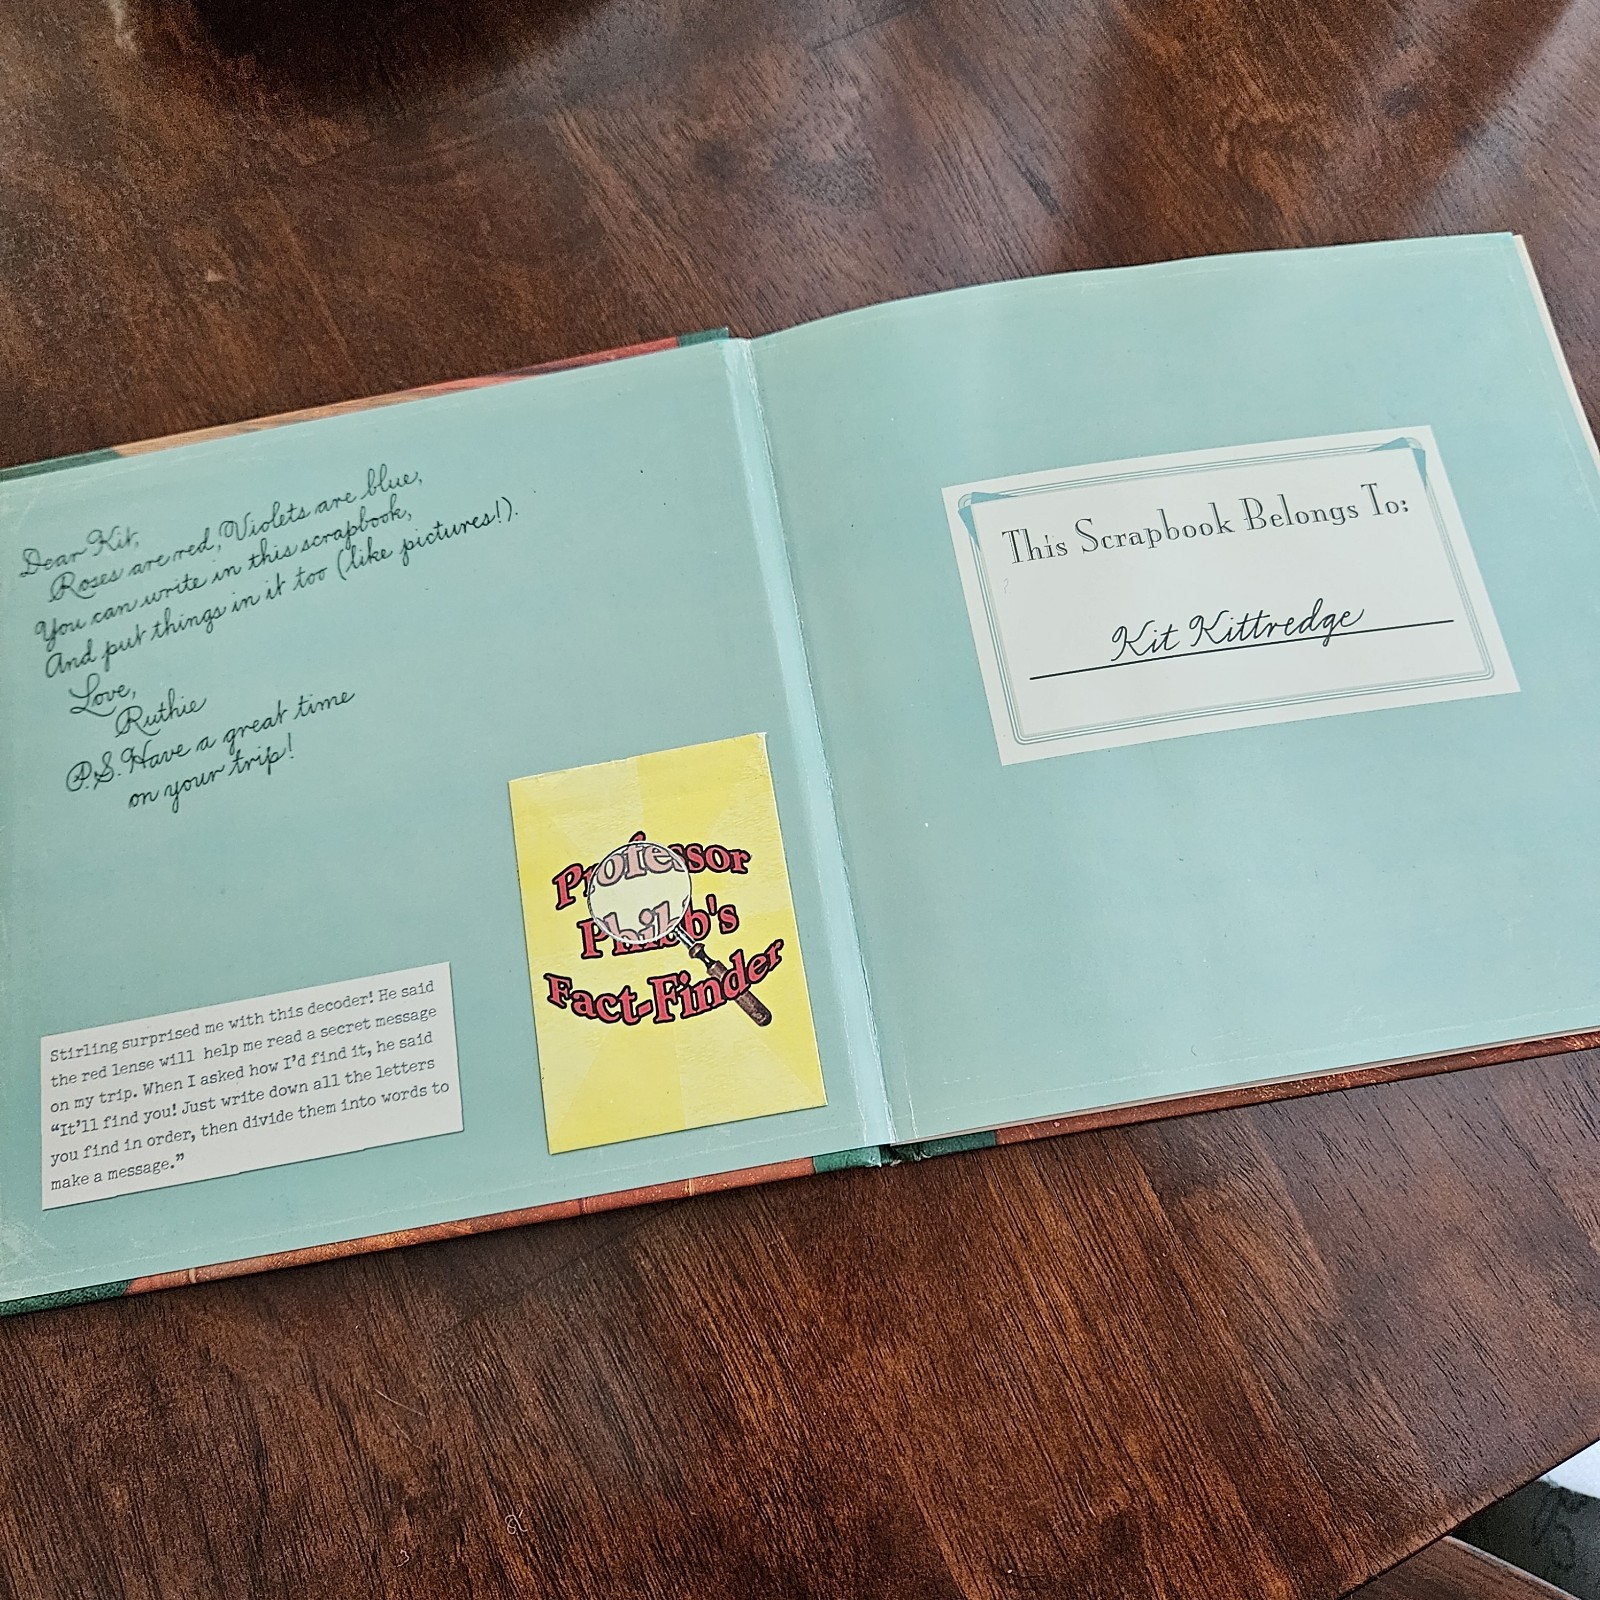 Dear Kit,
Roses are red, Violets are blue,
You can write in this scrapbook,
And put things in it too (like pictures!).
Love,
Ruthie
P.S. Have a great time
on your trip!
Stirling surprised me with this decoder! He said
the red lense will help me read a secret message
on my trip. When I asked how I'd find it, he said
"It'll find you! Just write down all the letters
you find in order, then divide them into words to
make a message."
Professor
Phibb's
Fact-Finder
This Scrapbook Belongs To:
Kit Kittredge